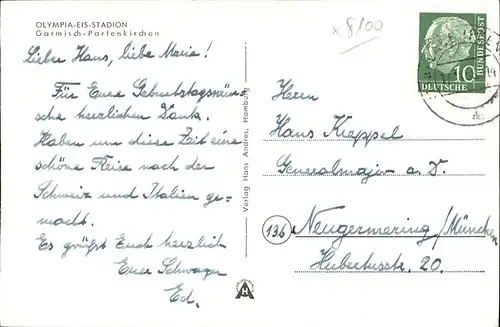 OLYMPIA-EIS-STADION
Garmisch-Partenkirchen
x 8100
Lieber Hans, liebe Maria!
Für Eure Geburtstagswün-
sche herzlichen Dank.
Haben um diese Zeit eine
schöne Reise nach der
Schweiz und Italien ge-
macht.
Es grüßt Euch herzlich
Euer Schwager
Ed.
Verlag Hans Andres, Hamburg
10
DEUTSCHE
BUNDESPOST
Herrn
Hans Kieppel
Generalmajor a. D.
(13b) Neugermering/München
Hubertusstr. 20.